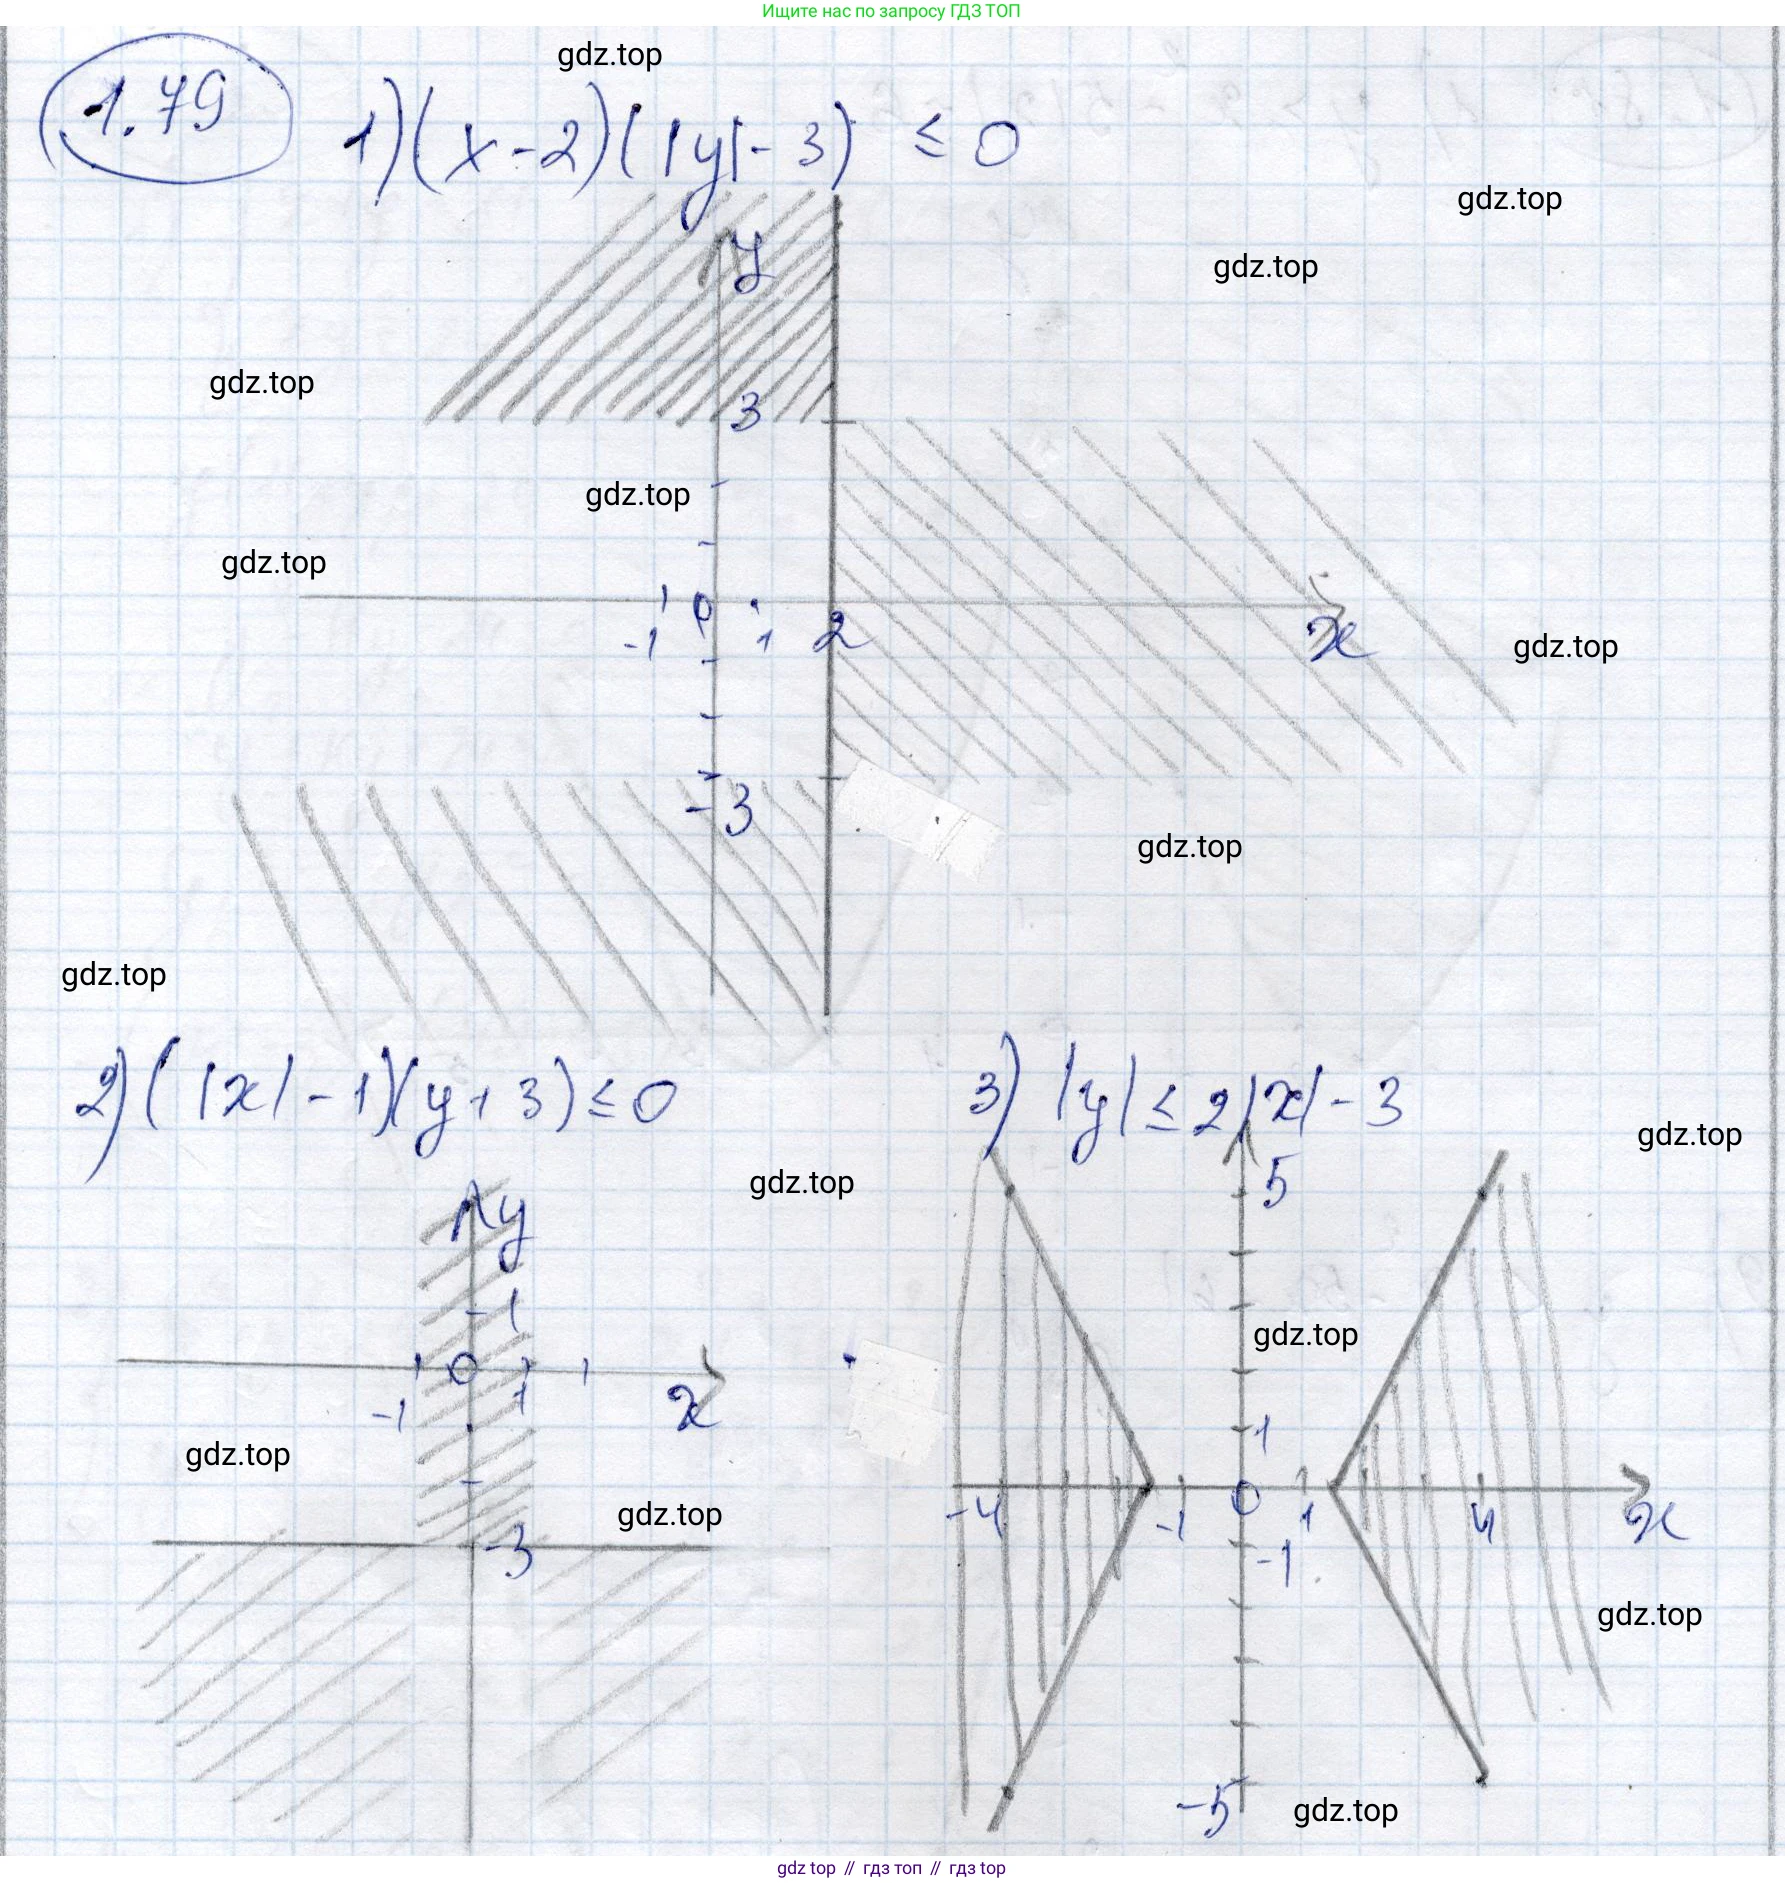 Ищите нас по запросу ГДЗ ТОП
1.79
1) (x-2)(|y|-3) ≤ 0
gdz.top
gdz.top
gdz.top
y
gdz.top
3
gdz.top
gdz.top
-1 0 1 2 x
gdz.top
-3
gdz.top
gdz.top
2) (|x|-1)(y+3) ≤ 0
3) |y| ≤ 2|x|-3
gdz.top
gdz.top
y
5
1
gdz.top
-1 0 1 x
1
gdz.top
-4 -1 0 1 4 x
gdz.top
-3
-1
gdz.top
-5
gdz.top
gdz top // гдз топ // гдз top